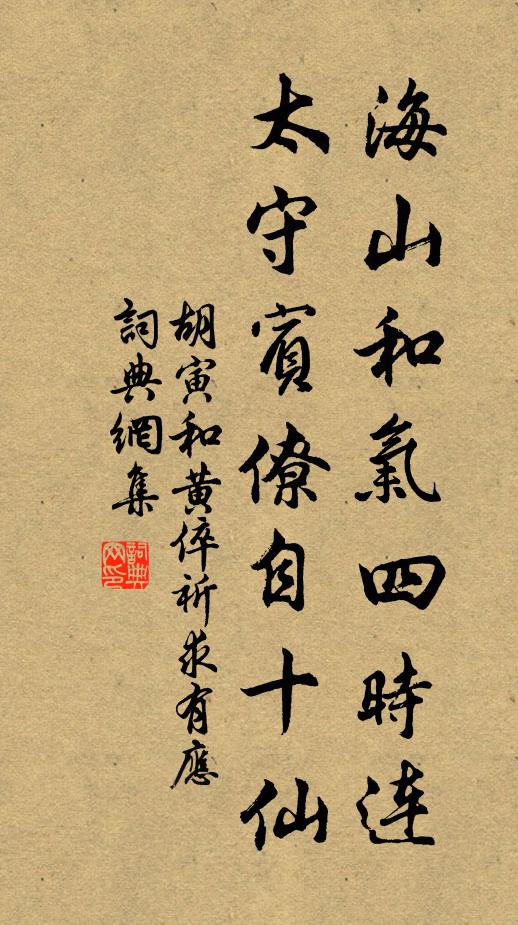 海山和氣四時連
太守賓僚自十仙
胡寅和黃倅祈求有應
詞典網集
詞典網印